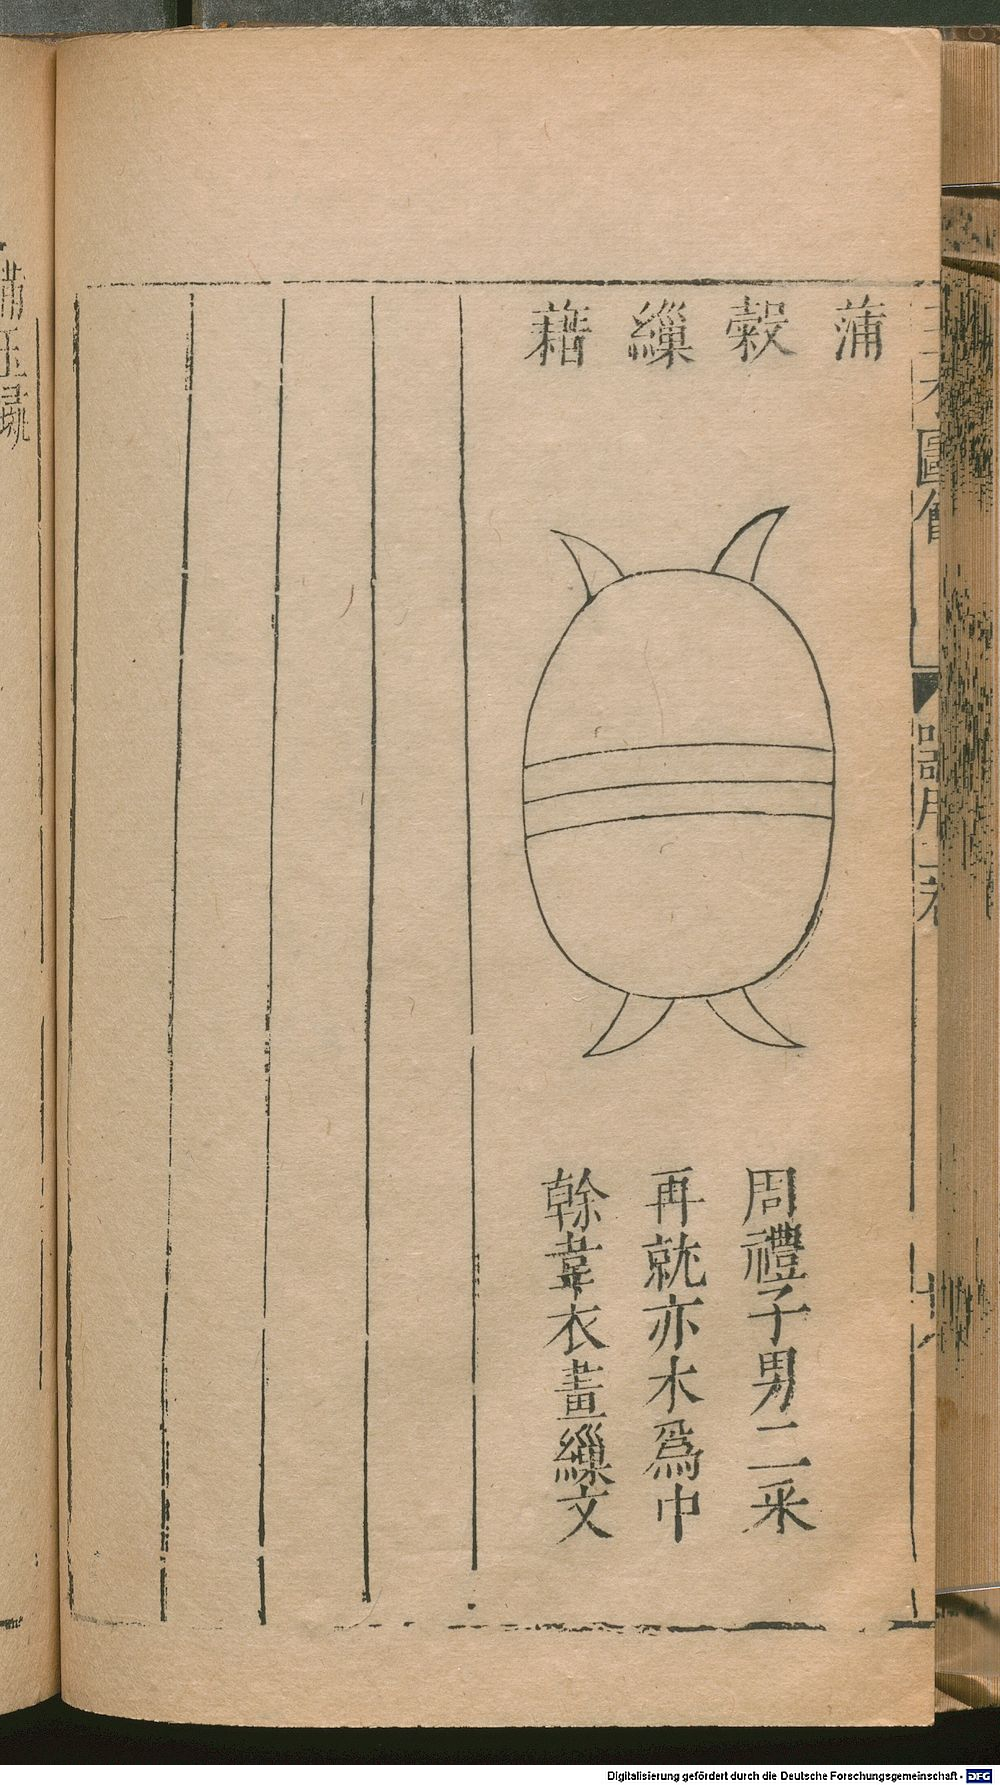 三才圖會
器用二卷
蒲
穀
繅
藉
周禮子男二采
再就亦木爲中
榦韋衣畫繅文
Digitalisierung gefördert durch die Deutsche Forschungsgemeinschaft - DFG